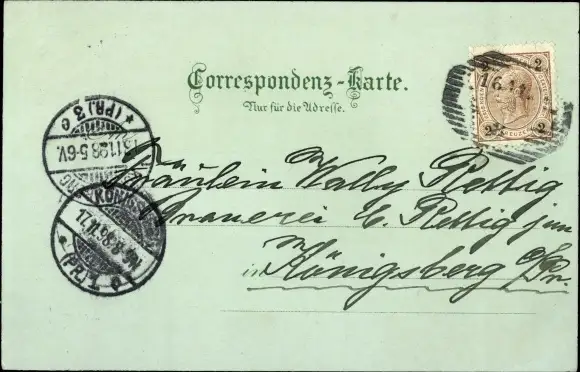 Correspondenz-Karte.
Nur für die Adresse.
2 2
16.11.
2 KREUZER 2
* (PR.) 3 e
.11.98.5-6V.
KÖNIGS
17.11.98.8-9V.
(PR.) 1
Fräulein Wally Rettig
Brauerei E. Rettig jun
in Königsberg o/Pr.